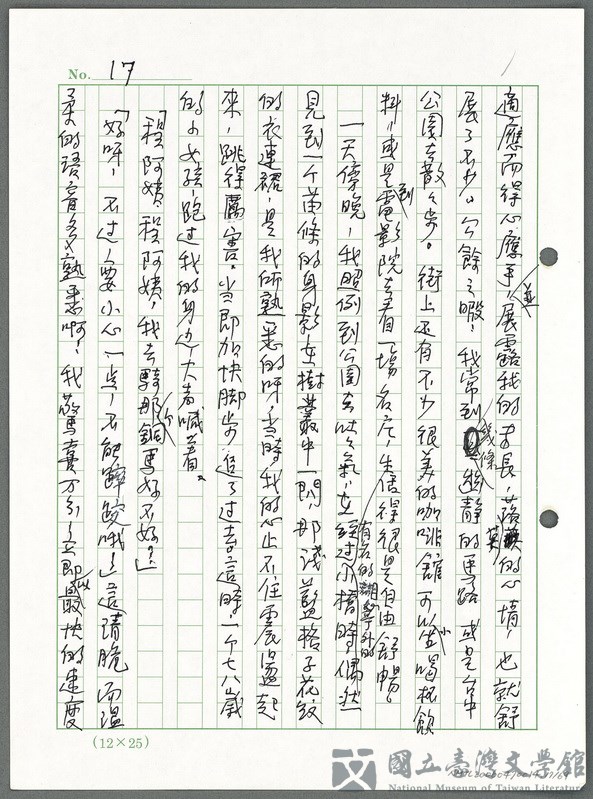 No. 17
適應而得心應手,並展露我的才長,落英的心情,也就舒
展了不少。公餘之暇,我常到幾條幽靜的馬路或是台中
公園去散散步。街上還有不少很美的咖啡館可以坐喝杯飲
料,或是到電影院去看一場名片,生活得很是自由舒暢。
有名的湖學外的
一天傍晚,我照例到公園去吹吹氣,在經過小橋時偶然
見到一个苗條的身影在樹叢中一閃,那淺藍格子花紋
的衣連裙,是我所熟悉的呀!當時我的心止不住震盪起
來,跳得厲害。當即加快脚步追了过去,這時一个七八歲
的小女孩,跑过我的身边大声喊着。
「程阿姨,程阿姨,我去騎那个銅馬好不好?」
「好呀,不过,要小心一点,不能蹕跤哦!」這清脆而溫
柔的語音多熟悉啊!我驚喜万分,立即以最快的速度
(12×25)
國立臺灣文學館
National Museum of Taiwan Literature